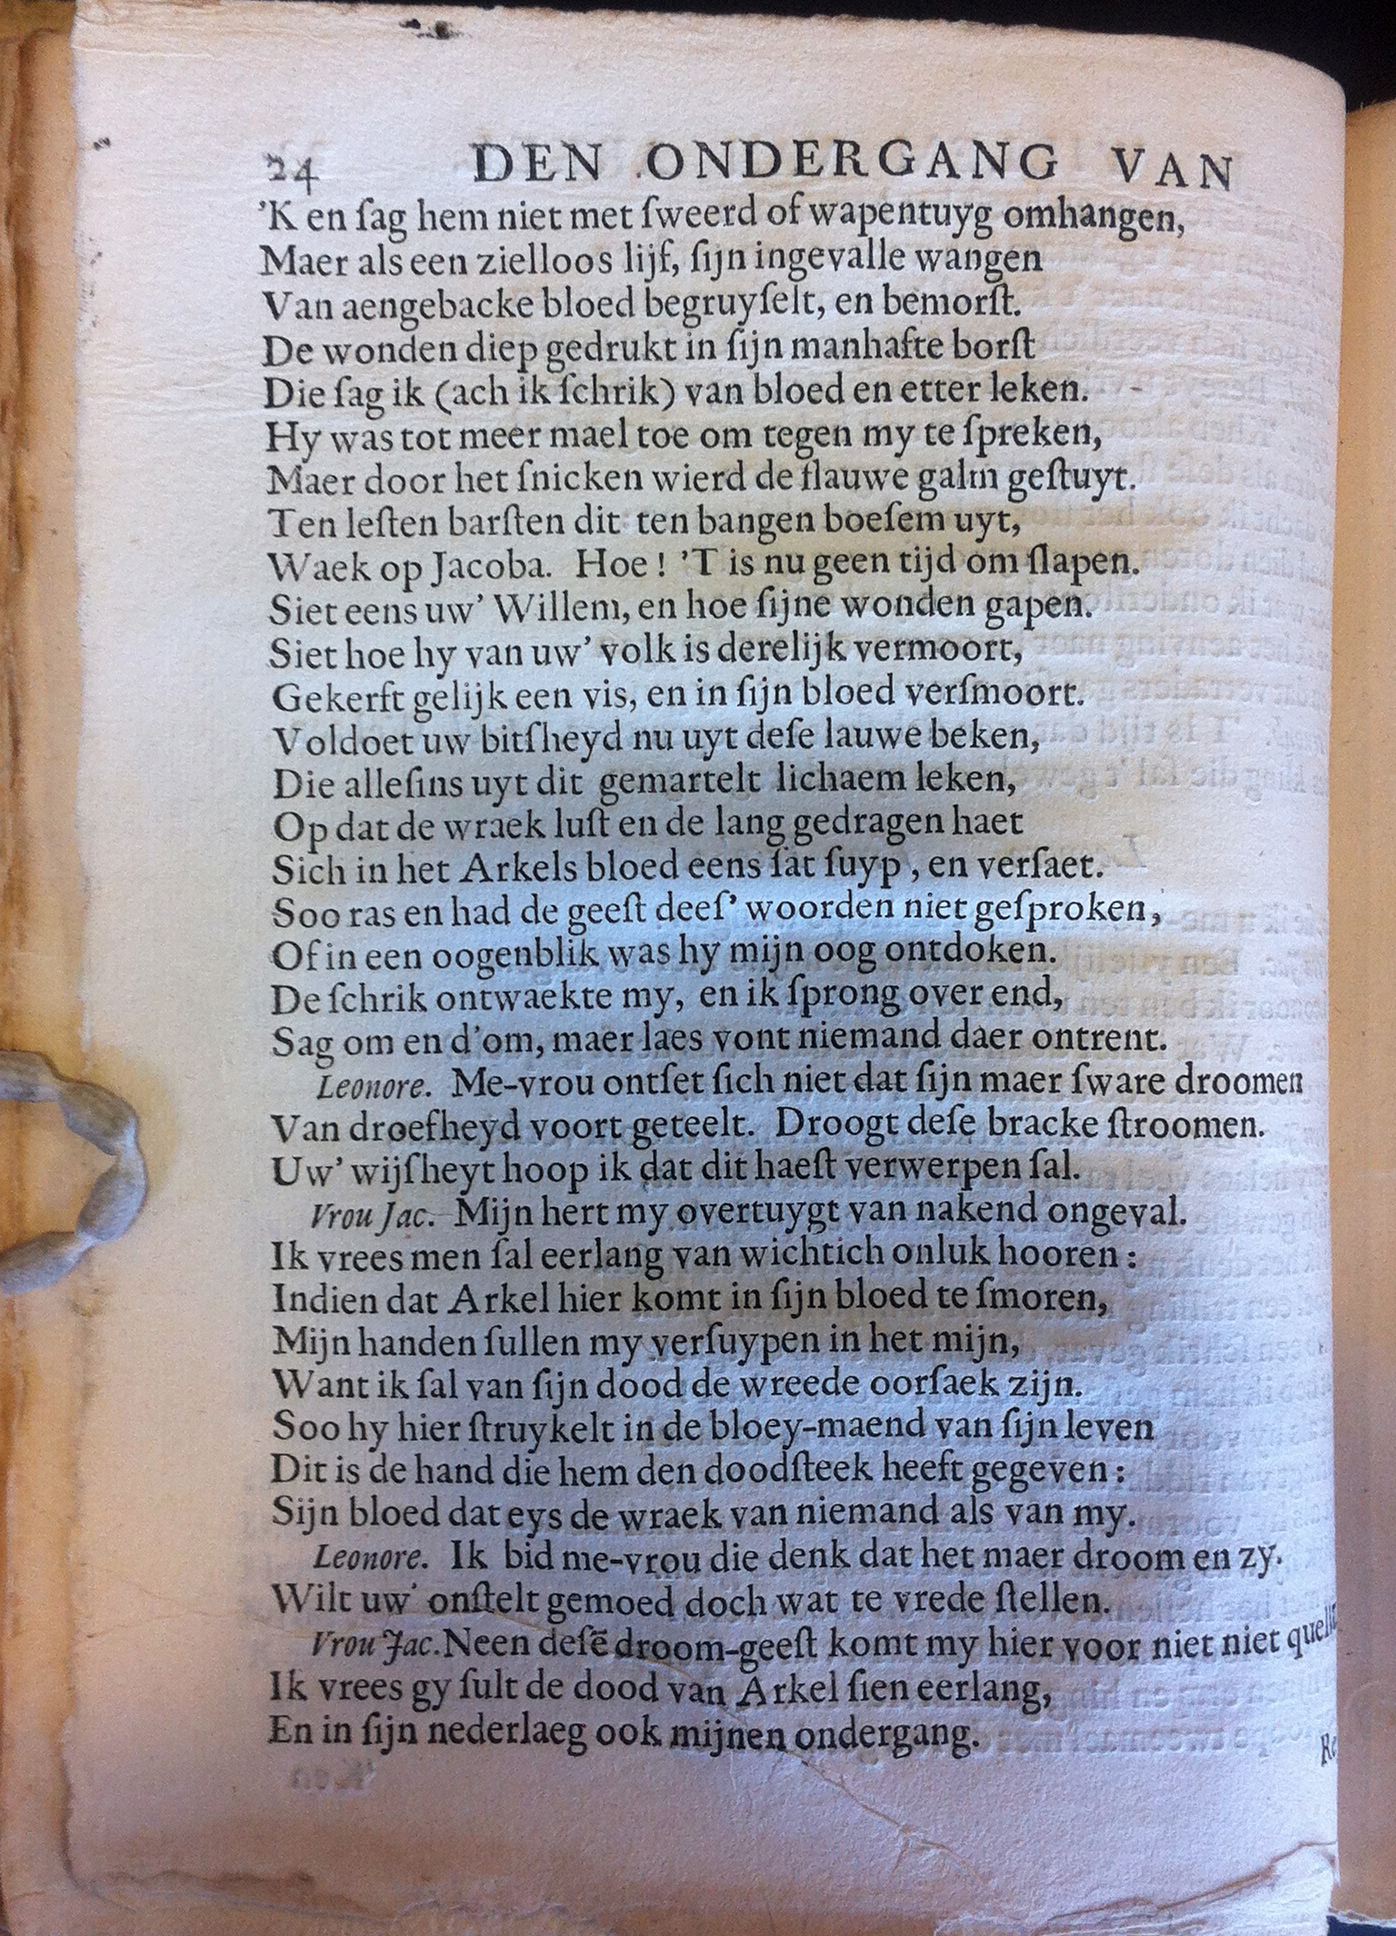 24 DEN ONDERGANG VAN
'K en ſag hem niet met ſweerd of wapentuyg omhangen,
Maer als een zielloos lijf, ſijn ingevalle wangen
Van aengebacke bloed begruyſelt, en bemorſt.
De wonden diep gedrukt in ſijn manhafte borſt
Die ſag ik (ach ik ſchrik) van bloed en etter leken.
Hy was tot meer mael toe om tegen my te ſpreken,
Maer door het ſnicken wierd de flauwe galm geſtuyt.
Ten leſten barſten dit ten bangen boeſem uyt,
Waek op Jacoba. Hoe! 'T is nu geen tijd om ſlapen.
Siet eens uw' Willem, en hoe ſijne wonden gapen.
Siet hoe hy van uw' volk is derelijk vermoort,
Gekerft gelijk een vis, en in ſijn bloed verſmoort.
Voldoet uw bitſheyd nu uyt deſe lauwe beken,
Die alleſins uyt dit gemartelt lichaem leken,
Op dat de wraek luſt en de lang gedragen haet
Sich in het Arkels bloed eens ſat ſuyp, en verſaet.
Soo ras en had de geeſt deeſ' woorden niet geſproken,
Of in een oogenblik was hy mijn oog ontdoken.
De ſchrik ontwaekte my, en ik ſprong over end,
Sag om en d'om, maer laes vont niemand daer ontrent.
Leonore. Me-vrou ontſet ſich niet dat ſijn maer ſware droomen
Van droefheyd voort geteelt. Droogt deſe bracke ſtroomen.
Uw' wijſheyt hoop ik dat dit haeſt verwerpen ſal.
Vrou Jac. Mijn hert my overtuygt van nakend ongeval.
Ik vrees men ſal eerlang van wichtich onluk hooren:
Indien dat Arkel hier komt in ſijn bloed te ſmoren,
Mijn handen ſullen my verſuypen in het mijn,
Want ik ſal van ſijn dood de wreede oorſaek zijn.
Soo hy hier ſtruykelt in de bloey-maend van ſijn leven
Dit is de hand die hem den doodſteek heeft gegeven:
Sijn bloed dat eys de wraek van niemand als van my.
Leonore. Ik bid me-vrou die denk dat het maer droom en zy.
Wilt uw' onſtelt gemoed doch wat te vrede ſtellen.
Vrou Jac. Neen deſē droom-geeſt komt my hier voor niet niet
Ik vrees gy ſult de dood van Arkel ſien eerlang,
En in ſijn nederlaeg ook mijnen ondergang.